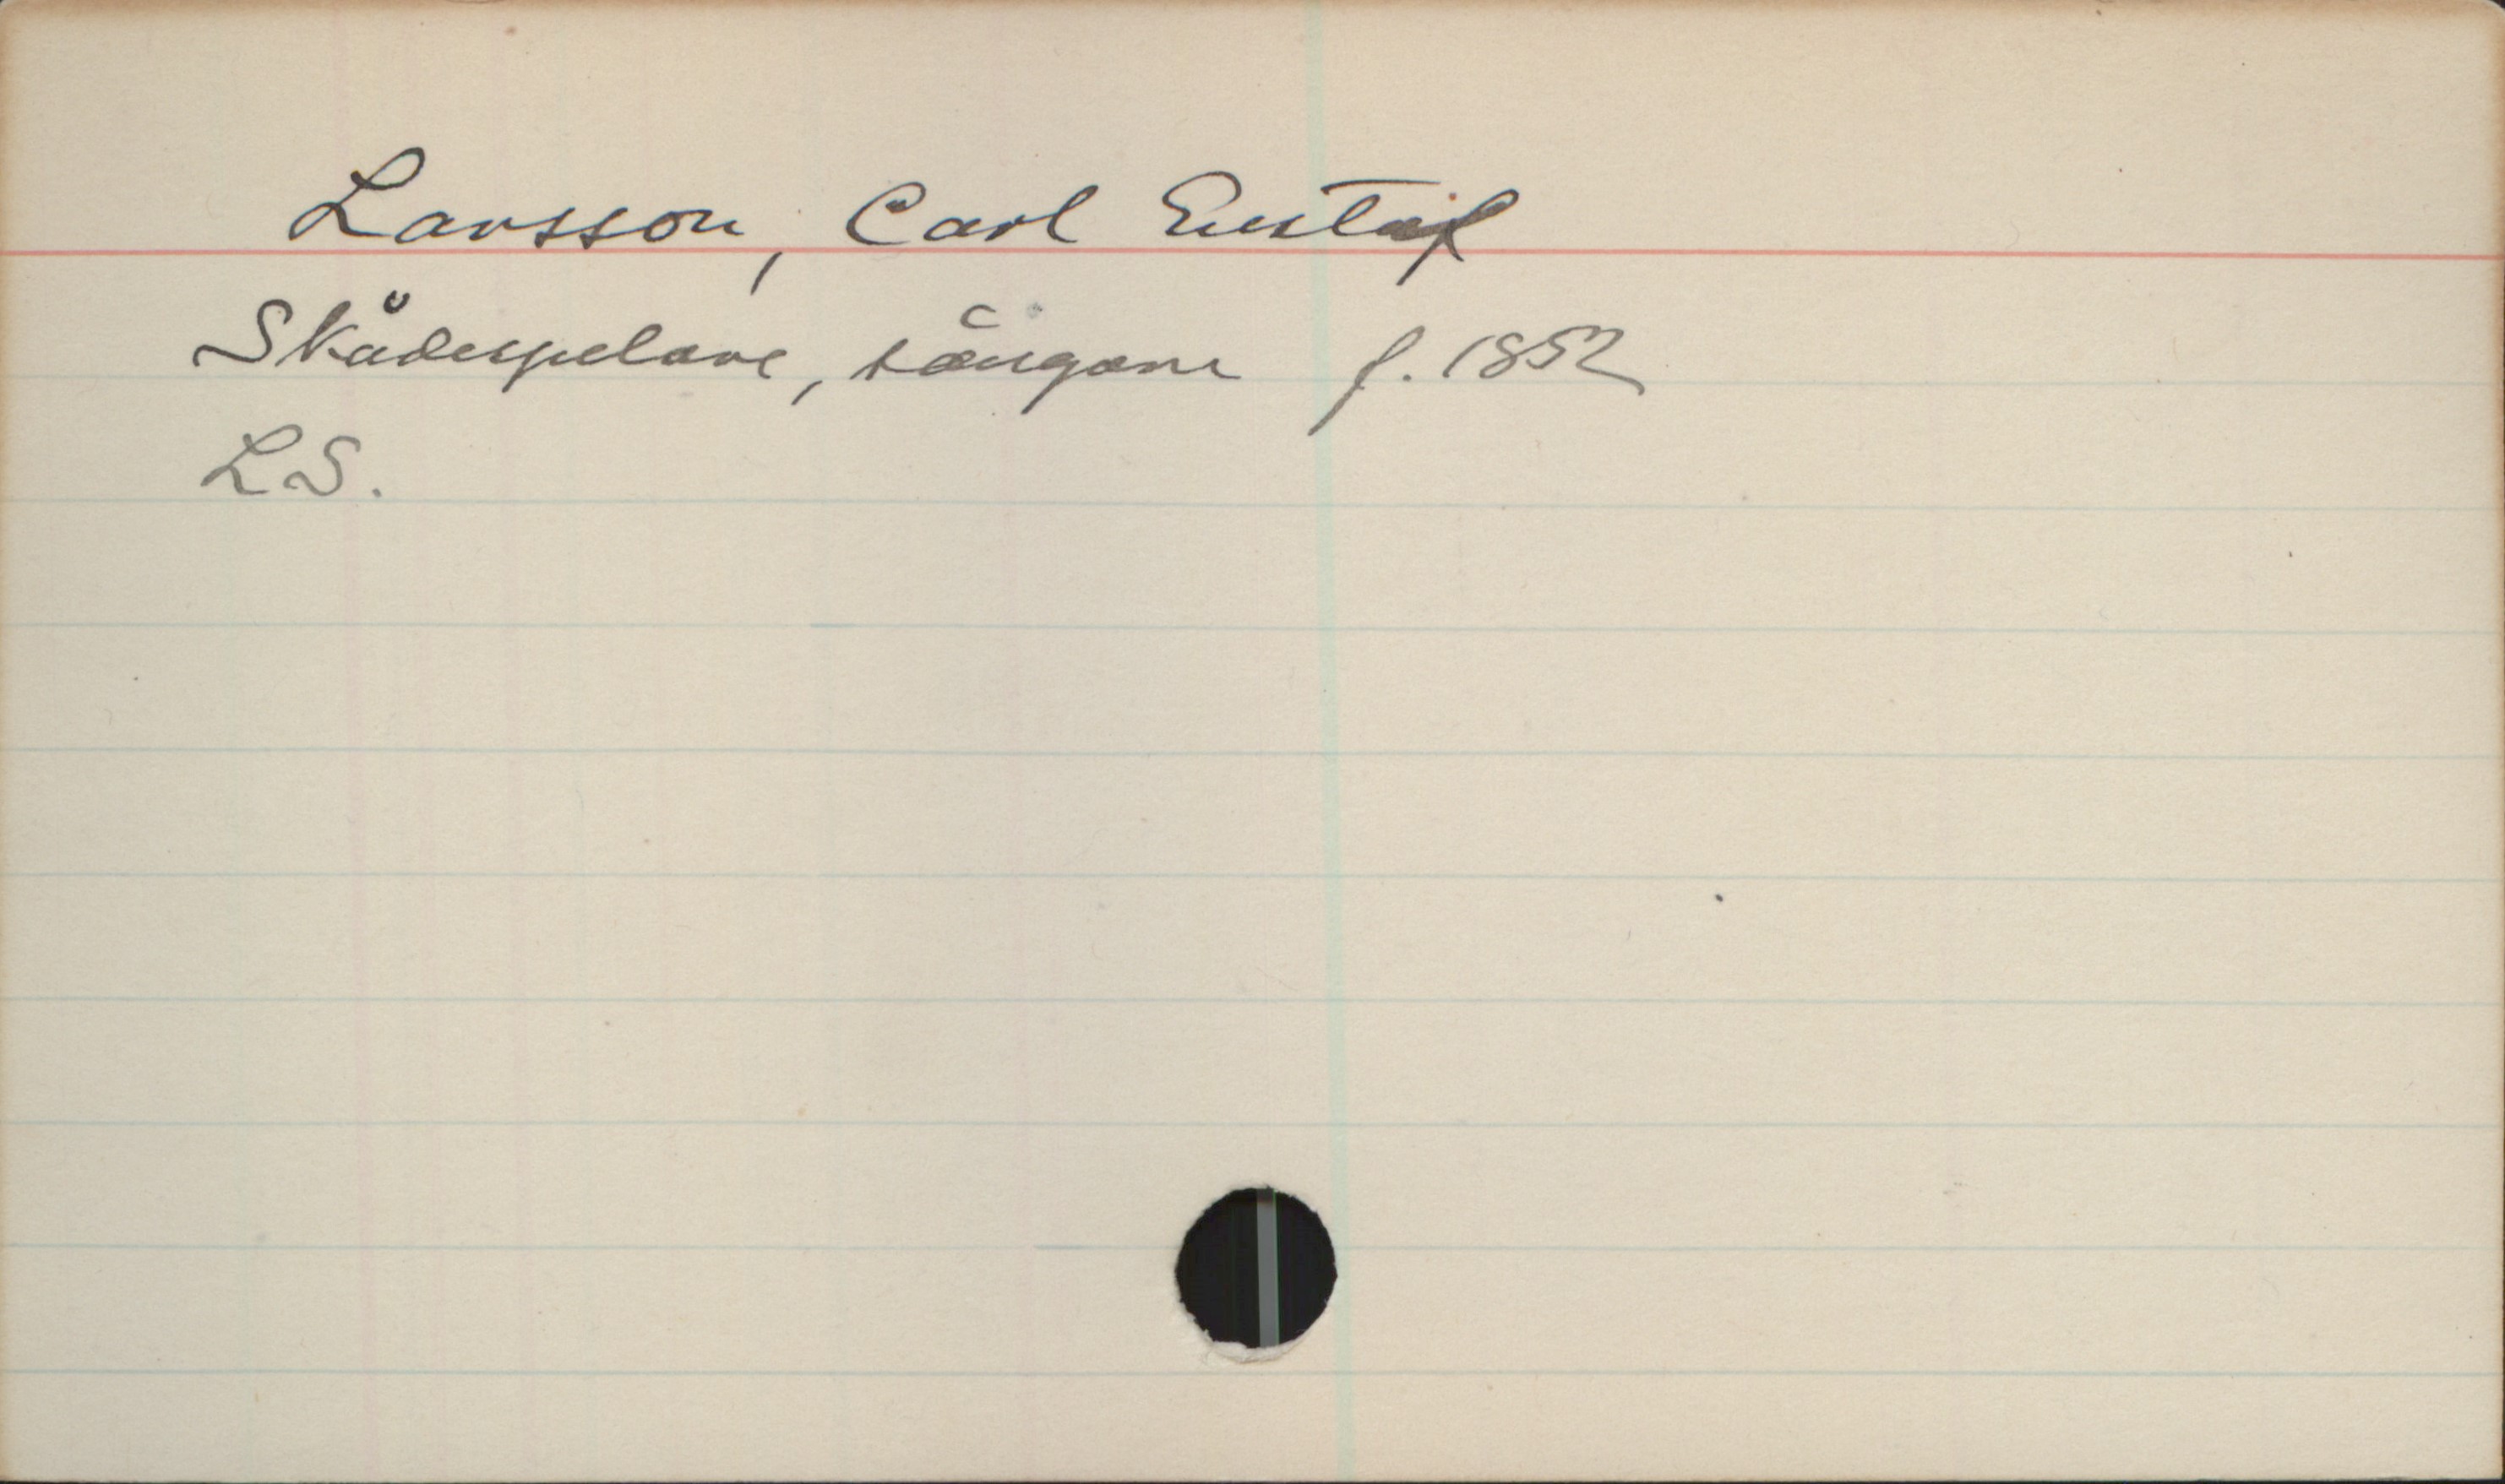 Larsson, Carl Gustaf
Skådespelare, sångare f. 1852
LS.